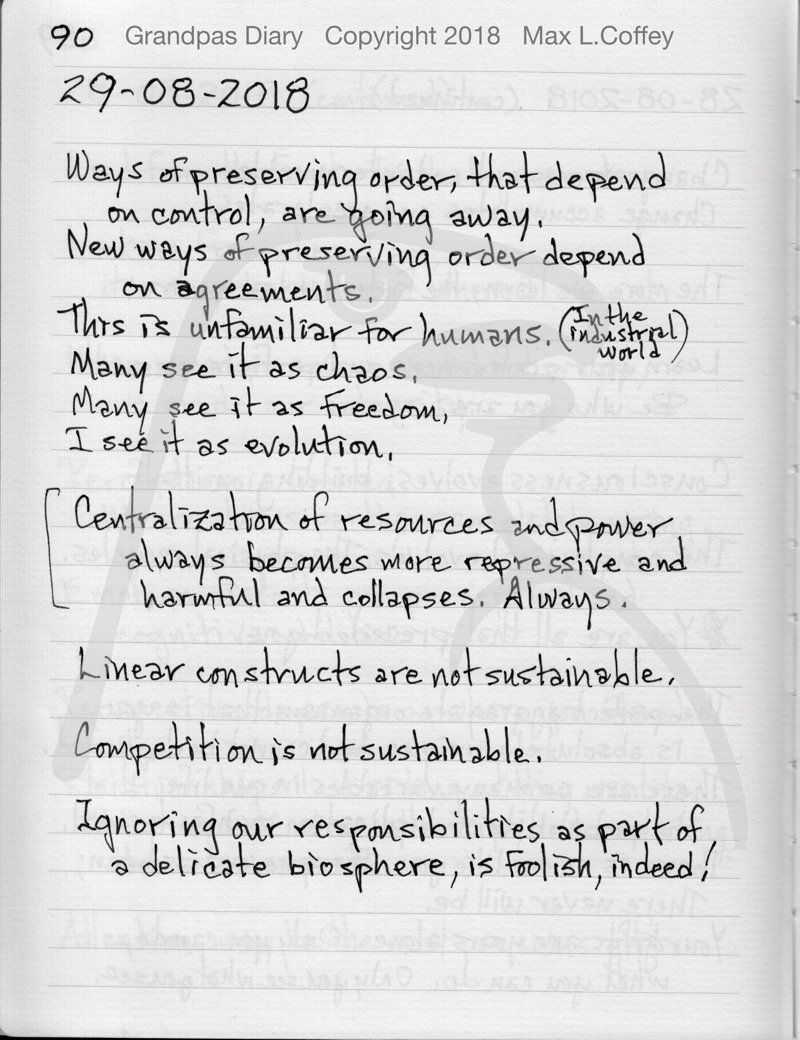 90 Grandpas Diary Copyright 2018 Max L.Coffey
29-08-2018
Ways of preserving order, that depend
on control, are going away.
New ways of preserving order depend
on agreements.
This is unfamiliar for humans. (In the
industrial
world)
Many see it as chaos.
Many see it as freedom,
I see it as evolution.
Centralization of resources and power
always becomes more repressive and
harmful and collapses. Always.
Linear constructs are not sustainable.
Competition is not sustainable.
Ignoring our responsibilities as part of
a delicate biosphere, is foolish, indeed!